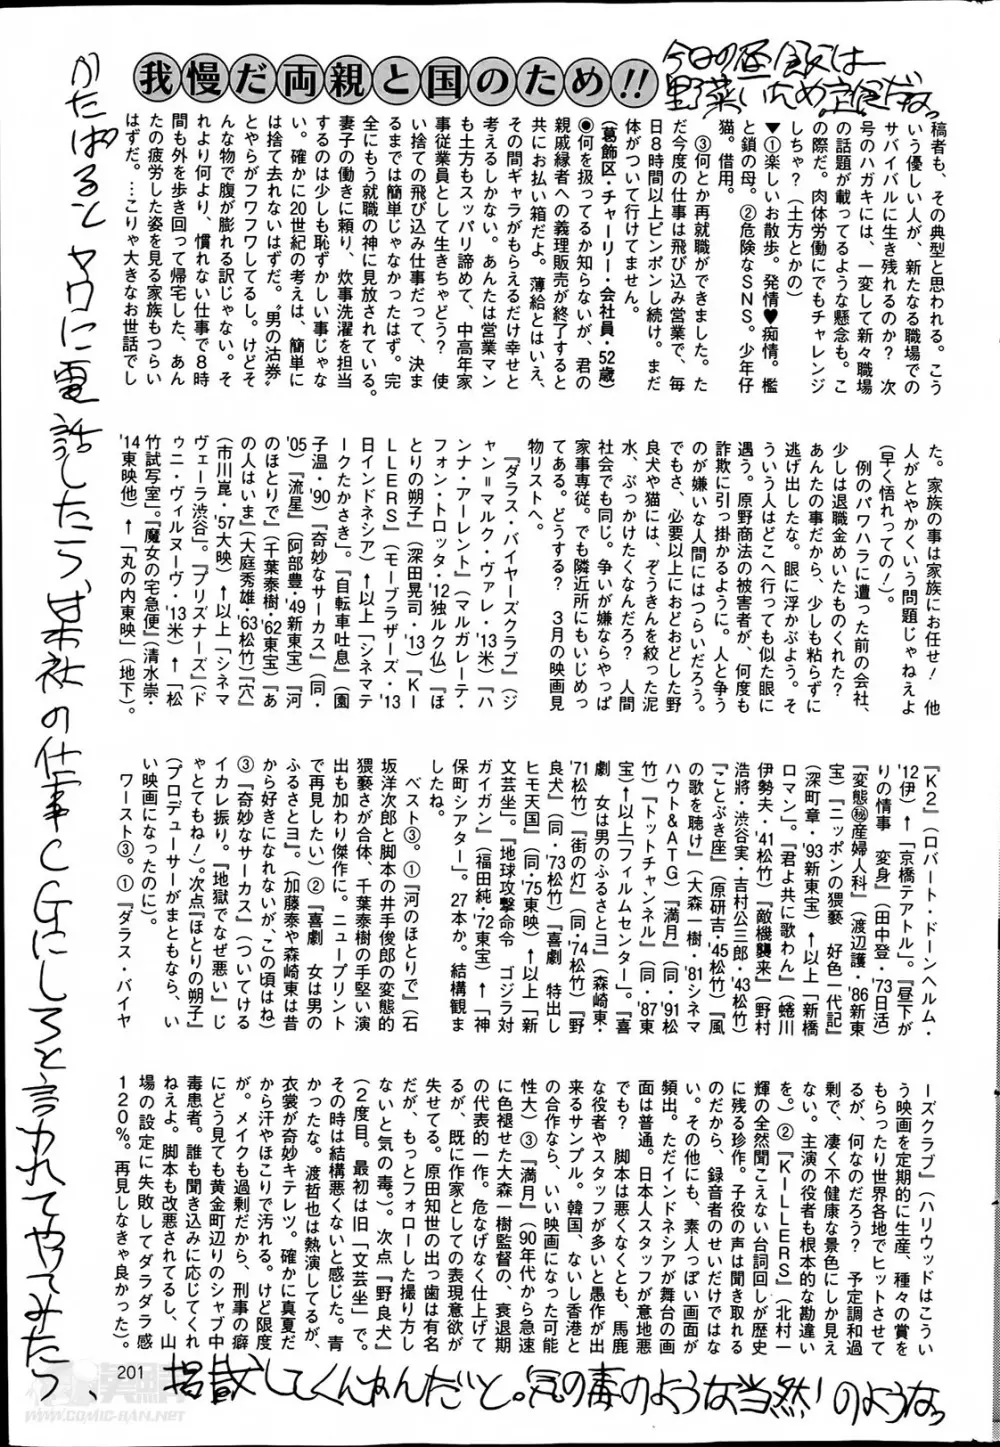 我慢だ両親と国のため!!
今日の昼飯は
野菜いため定食だな。
稿者も、その典型と思われる。こう
いう優しい人が、新たなる職場での
サバイバルに生き残れるのか? 次
号のハガキには、一変して新々職場
の話題が載ってるような懸念も。こ
の際だ。肉体労働にでもチャレンジ
しちゃ?(土方とかの)
▼①楽しいお散歩。発情♥痴情。檻
と鎖の母。②危険なSNS。少年仔
猫。借用。
③何とか再就職ができました。た
だ今度の仕事は飛び込み営業で、毎
日8時間以上ピンポンし続け。まだ
体がついて行けてません。
(葛飾区・チャーリー・会社員・52歳)
◉何を扱ってるか知らないが、君の
親戚縁者への義理販売が終了すると
共にお払い箱だよ。薄給とはいえ、
その間ギャラがもらえるだけ幸せと
考えるしかない。あんたは営業マン
も土方もスッパリ諦めて、中高年家
事従業員として生きちゃどう? 使
い捨ての飛び込み仕事だって、決ま
るまでは簡単じゃなかったはず。完
全にもう就職の神に見放されている。
妻子の働きに頼り、炊事洗濯を担当
するのは少しも恥ずかしい事じゃな
い。確かに20世紀の考えは、簡単に
は捨て去れないはずだ。〝男の沽券〟
とやらがフワフワしてるし。けどそ
んな物で腹が膨れる訳じゃない。そ
れより何より、慣れない仕事で8時
間も外を歩き回って帰宅した、あん
たの疲労した姿を見る家族もつらい
はずだ。…こりゃ大きなお世話でし
た。家族の事は家族にお任せ! 他
人がとやかくいう問題じゃねえよ
(早く悟れっての!)。
例のパワハラに遭った前の会社、
少しは退職金めいたものくれた?
あんたの事だから、少しも粘らずに
逃げ出したな。眼に浮かぶよう。そ
ういう人はどこへ行っても似た眼に
遇う。原野商法の被害者が、何度も
詐欺に引っ掛かるように。人と争う
のが嫌いな人間にはつらいだろう。
でもさ、必要以上におどおどした野
良犬や猫には、ぞうきんを絞った泥
水、ぶっかけたくなんだろ? 人間
社会でも同じ。争いが嫌ならやっぱ
家事専従。でも隣近所にもいじめっ
てある。どうする? 3月の映画見
物リストへ。
『ダラス・バイヤーズクラブ』(ジ
ャン=マルク・ヴァレ・'13米)『ハ
ンナ・アーレント』(マルガレーテ・
フォン・トロッタ・'12独ルク仏)『ほ
とりの朔子』(深田晃司・'13)『KI
LLERS』(モーブラザーズ・'13
日インドネシア)↑以上「シネマテ
ークたかさき」。『自転車吐息』(園
子温・'90)『奇妙なサーカス』(同・
'05)『流星』(阿部豊・'49新東宝)『河
のほとりで』(千葉泰樹・'62東宝)『あ
の人はいま』(大庭秀雄・'63松竹)『穴』
(市川崑・'57大映)↑以上「シネマ
ヴェーラ渋谷」。『プリズナーズ』(ド
ゥニ・ヴィルヌーヴ・'13米)↑「松
竹試写室」。『魔女の宅急便』(清水崇・
'14東映他)↑「丸の内東映」(地下)。
『K2』(ロバート・ドーンヘルム・
'12伊)↑「京橋テアトル」。『昼下が
りの情事 変身』(田中登・'73日活)
『変態㊙産婦人科』(渡辺護・'86新東
宝)『ニッポンの猥褻 好色一代記』
(深町章・'93新東宝)↑以上「新橋
ロマン」。『君よ共に歌わん』(蜷川
伊勢夫・'41松竹)『敵機襲来』(野村
浩将・渋谷実・吉村公三郎・'43松竹)
『ことぶき座』(原研吉・'45松竹)『風
の歌を聴け』(大森一樹・'81シネマ
ハウト&ATG)『満月』(同・'91松
竹)『トットチャンネル』(同・'87東
宝)↑以上「フィルムセンター」。『喜
劇 女は男のふるさとヨ』(森崎東・
'71松竹)『街の灯』(同・'74松竹)『野
良犬』(同・'73松竹)『喜劇 特出し
ヒモ天国』(同・'75東映)↑以上「新
文芸坐」。『地球攻撃命令 ゴジラ対
ガイガン』(福田純・'72東宝)↑「神
保町シアター」。27本か。結構観ま
したね。
ベスト③。①『河のほとりで』(石
坂洋次郎と脚本の井手俊郎の変態的
猥褻さが合体、千葉泰樹の手堅い演
出も加わり傑作に。ニュープリント
で再見したい)②『喜劇 女は男の
ふるさとヨ』(加藤泰や森崎東は昔
から好きになれないが、この頃はね)
③『奇妙なサーカス』(ついてける
イカレ振り。『地獄でなぜ悪い』じ
ゃとてもね!)。次点『ほとりの朔子』
(プロデューサーがまともなら、い
い映画になったのに)。
ワースト③。①『ダラス・バイヤ
ーズクラブ』(ハリウッドはこうい
う映画を定期的に生産、種々の賞を
もらったり世界各地でヒットさせて
るが、何なのだろう? 予定調和過
剰で、凄く不健康な景色にしか見え
ない。主演の役者も根本的な勘違い
を。)②『KILLERS』(北村一
輝の全然聞こえない台詞回しが歴史
に残る珍作。子役の声は聞き取れる
のだから、録音者のせいだけではな
い。その他にも、素人っぽい画面が
頻出。ただインドネシアが舞台の画
面は普通。日本人スタッフが意地悪
でも? 脚本は悪くなくとも、馬鹿
な役者やスタッフが多いと愚作が出
来るサンプル。韓国、ないし香港と
の合作なら、いい映画になった可能
性大)③『満月』('90年代から急速
に色褪せた大森一樹監督の、衰退期
の代表的一作。危なげなく仕上げて
るが、既に作家としての表現意欲が
失せてる。原田知世の出っ歯は有名
だが、もっとフォローした撮り方し
ないと気の毒。)。次点『野良犬』
(2度目。最初は旧「文芸坐」で。
その時は結構悪くないと感じた。青
かったな。渡哲也は熱演してるが、
衣裳が奇妙キテレツ。確かに真夏だ
から汗やほこりで汚れる。けど限度
が。メイクも過剰だから、刑事の癖
にどう見ても黄金町辺りのシャブ中
毒患者。誰も聞き込みに応じてくれ
ねえよ。脚本も改悪されてるし、山
場の設定に失敗してダラダラ感
120%。再見しなきゃ良かった)。
かたぱると ヤロに電話したら、某社の仕事CGにしろと言われてやってみたら、
掲載してくんねんだと。気の毒のような当然のような。
201
WWW.COMIC-RAN.NET